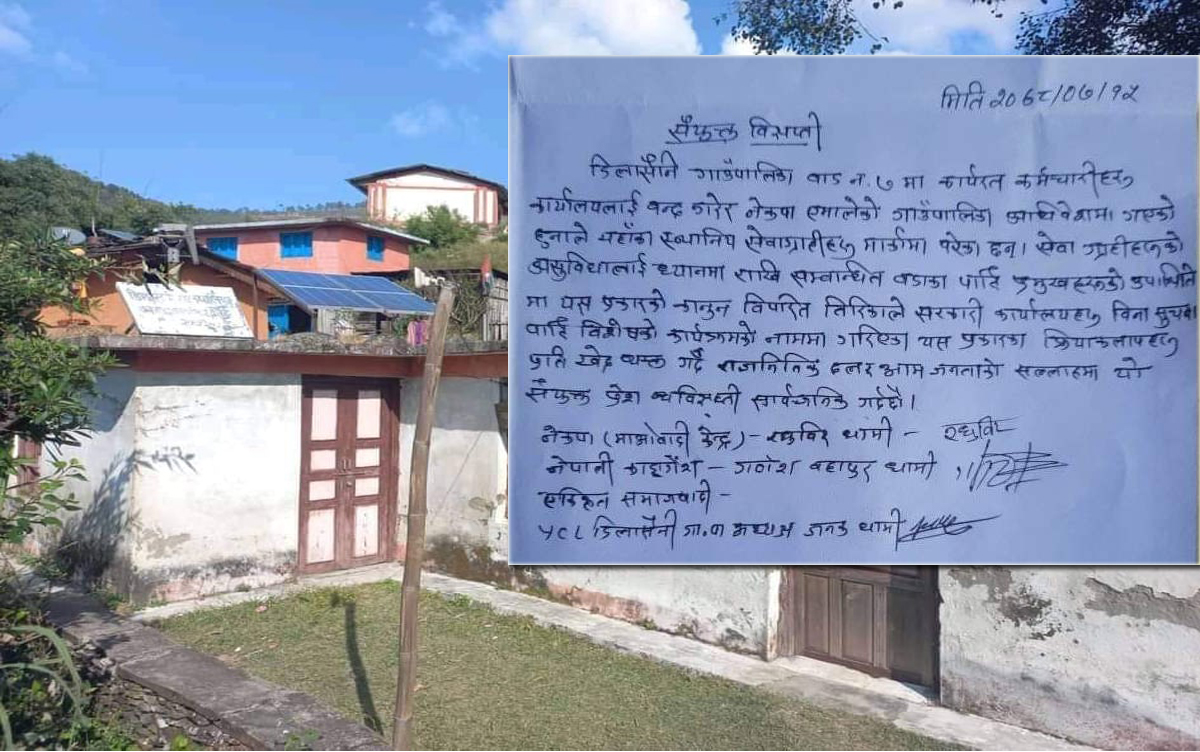 मिति २०७८/०७/१२
सँयुक्त विज्ञप्ती
डिलासैनि गाउँपालिका वाड न. ७ मा कार्यरत कर्मचारीहरु
कार्यालयलाई वन्द गरेर नेकपा एमालेको गाउँपालिका अधिवेशनमा गएको
हुनाले यहाँका स्थानिय सेवाग्राहीहरु मार्कामा परेका छन। सेवा ग्राहीहरुको
असुविधालाई ध्यानमा राखि सम्वान्धित वडाका पार्टि प्रमुखहरुको उपस्थिति
मा यस प्रकारको कानुन विपरित तरिकाले सरकारी कार्यालयहरु विना सुचना
पार्टि विशेषको कार्यक्रमको नाममा गरिएका यस प्रकारका क्रियाकलापहरु
प्रति खेद व्यक्त गर्दै राजनितिक दल र आम जनताको सल्लाहमा यो
सँयुक्त प्रेश व्यविज्ञप्ती सार्वजनिक गर्दछौं।
नेकपा (माओवादी केन्द्र) - रघुविर धामी - रघुविर
नेपाली काङग्रेश - गणेश वहादुर धामी
एकिकृत समाजवादी -
YCL डिलासैनी गा.पा अध्यक्ष जनक धामी